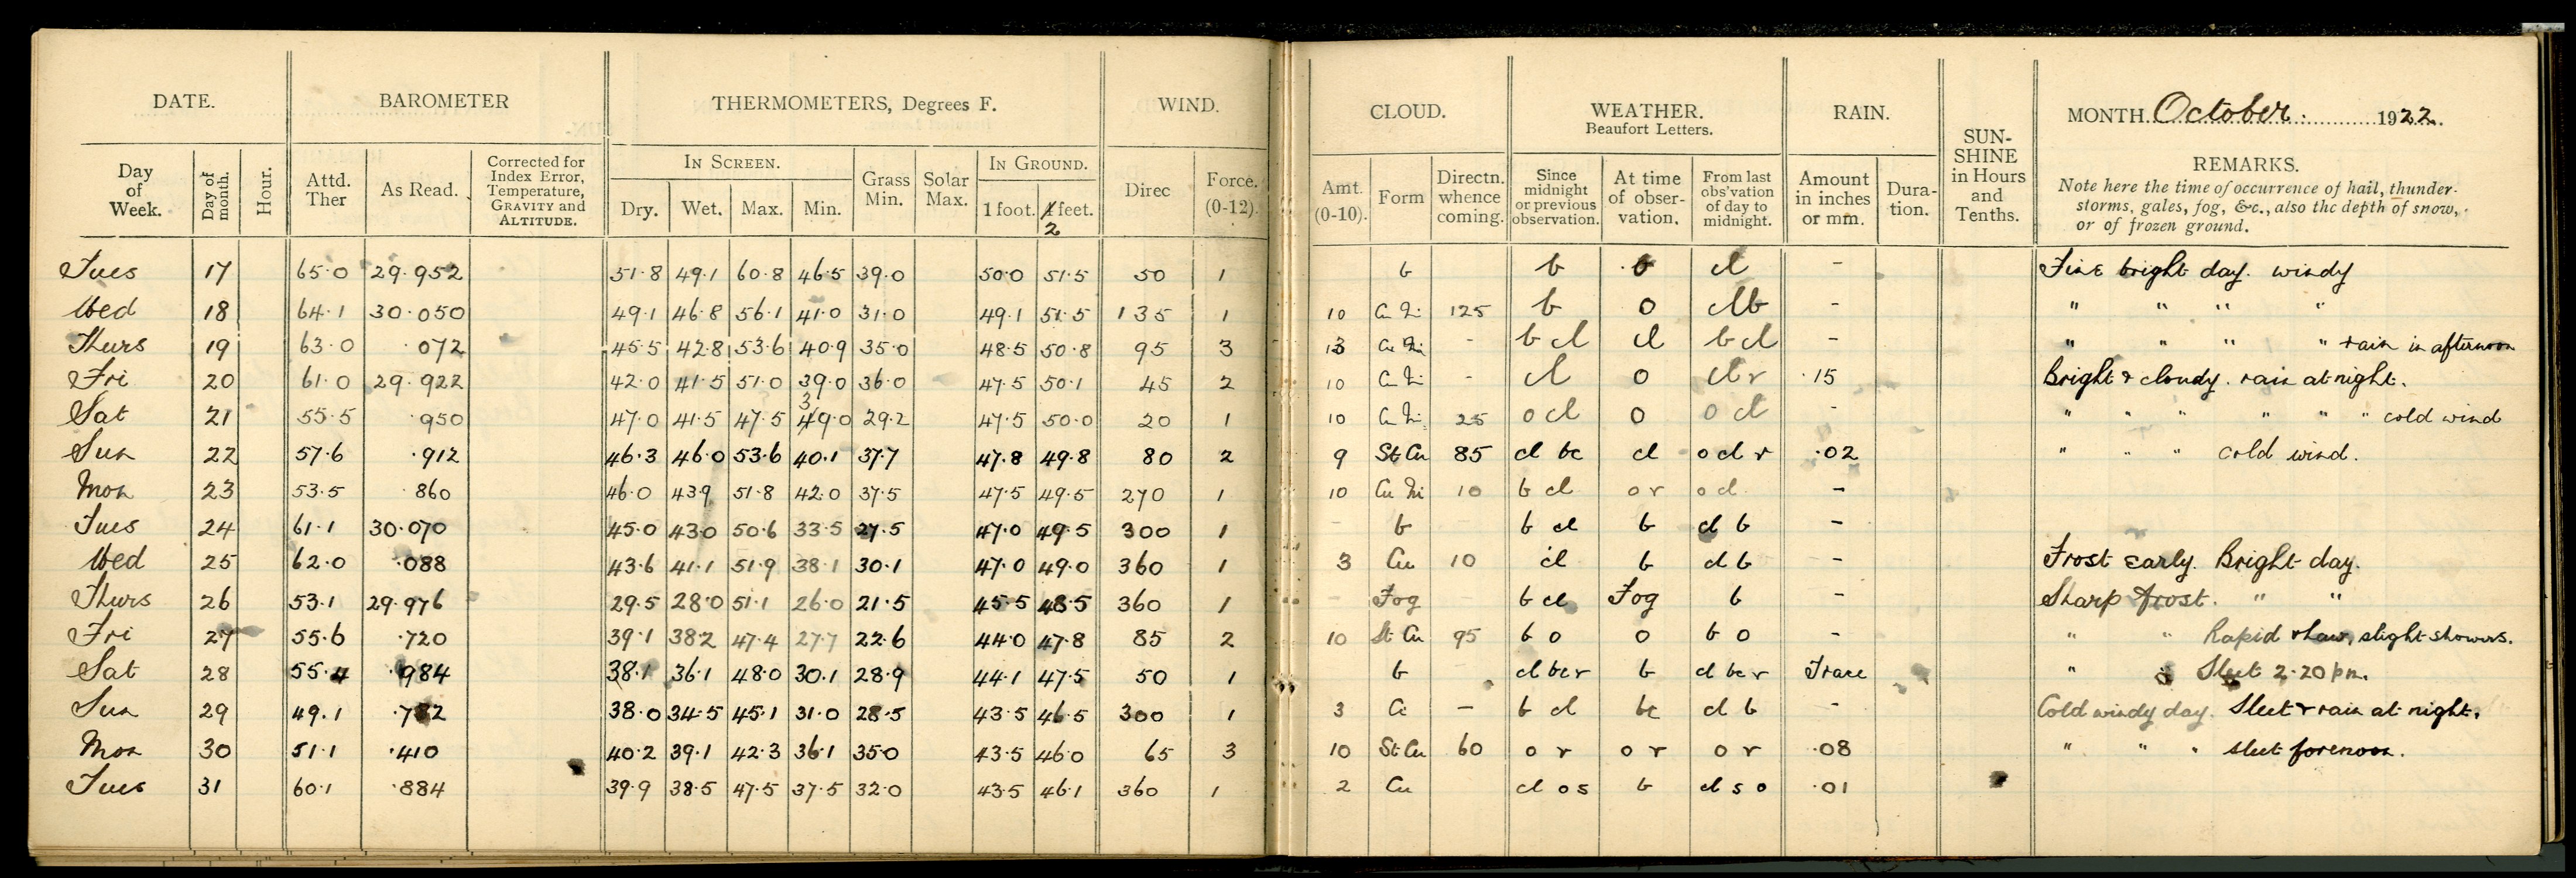 DATE. BAROMETER THERMOMETERS, Degrees F. WIND. CLOUD. WEATHER. RAIN. MONTH October. 1922.
Beaufort Letters.
Day of Week. Day of month. Hour. Attd. Ther As Read. Corrected for Index Error, Temperature, GRAVITY and ALTITUDE. IN SCREEN. Dry. Wet. Max. Min. Grass Min. Solar Max. IN GROUND. 1 foot. 2 feet. Direc Force. (0-12). Amt. (0-10). Form Directn. whence coming. Since midnight or previous observation. At time of obser-vation. From last obs'vation of day to midnight. Amount in inches or mm. Dura-tion. SUN-SHINE in Hours and Tenths. REMARKS.
Note here the time of occurrence of hail, thunder-
storms, gales, fog, &c., also the depth of snow,
or of frozen ground.
Tues 17 65.0 29.952 51.8 49.1 60.8 46.5 39.0 50.0 51.5 50 1 b b b cl - Fine bright day. windy
Wed 18 64.1 30.050 49.1 46.8 56.1 41.0 31.0 49.1 51.5 135 1 10 Cu Ni 125 b o clb - " " " "
Thurs 19 63.0 .072 45.5 42.8 53.6 40.9 35.0 48.5 50.8 95 3 Cu Ni - b cl cl b cl - " " " " rain in afternoon
Fri 20 61.0 29.922 42.0 41.5 51.0 39.0 36.0 47.5 50.1 45 2 10 Cu Ni - cl o clr .15 Bright & cloudy. rain at night.
Sat 21 55.5 .950 47.0 41.5 47.5 39.0 29.2 47.5 50.0 20 1 10 Cu Ni 25 o cl o o cl - " " " " " " cold wind
Sun 22 57.6 .912 46.3 46.0 53.6 40.1 37.7 47.8 49.8 80 2 9 St Cu 85 cl bc cl o cl r .02 " " " cold wind.
Mon 23 53.5 .860 46.0 43.9 51.8 42.0 37.5 47.5 49.5 270 1 10 Cu Ni 10 b cl o r o cl -
Tues 24 61.1 30.070 45.0 43.0 50.6 33.5 27.5 47.0 49.5 300 1 b b cl b cl b -
Wed 25 62.0 .088 43.6 41.1 51.9 38.1 30.1 47.0 49.0 360 1 3 Cu 10 cl b cl b - Frost early. Bright day.
Thurs 26 53.1 29.976 29.5 28.0 51.1 26.0 21.5 45.5 48.5 360 1 Fog b cl Fog b - Sharp frost. " "
Fri 27 55.6 .720 39.1 38.2 47.4 27.7 22.6 44.0 47.8 85 2 10 St Cu 95 b o o b o - " " Rapid thaw, slight showers.
Sat 28 55.4 .984 38.1 36.1 48.0 30.1 28.9 44.1 47.5 50 1 b cl bc r b cl bc r Trace " " Sleet 2.20 pm.
Sun 29 49.1 38.0 34.5 45.1 31.0 28.5 43.5 46.5 300 1 3 - b cl bc cl b - Cold windy day. Sleet & rain at night.
Mon 30 51.1 .410 40.2 39.1 42.3 36.1 35.0 43.5 46.0 65 3 10 St Cu 60 o r o r o r .08 " " " sleet forenoon.
Tues 31 60.1 .884 39.9 38.5 47.5 37.5 32.0 43.5 46.1 360 1 2 Cu cl o s b cl s o .01